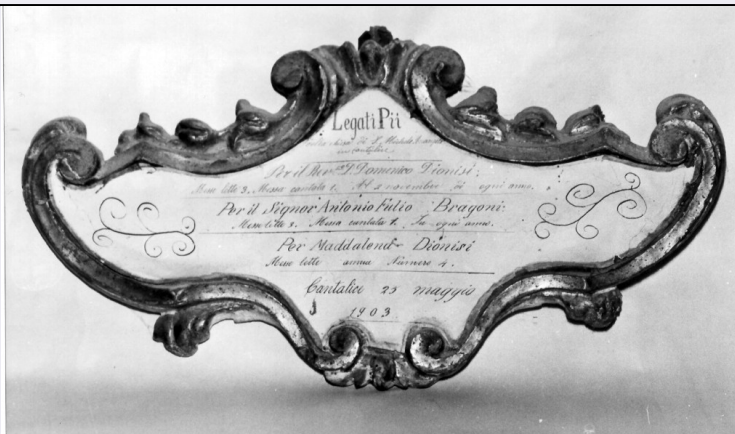 Legati Pii
nella chiesa di S. Michele Arcangelo
in Cantalice
Per il Rev.mo D. Domenico Dionisi:
Messe lette 3. Messa cantata 1. 2 novembre di ogni anno.
Per il Signor Antonio Fulio Bragoni:
Messe lette 2. Messa cantata 1. In ogni anno.
Per Maddalena Dionisi
Messe lette annue Numero 4.
Cantalice 25 maggio
1903